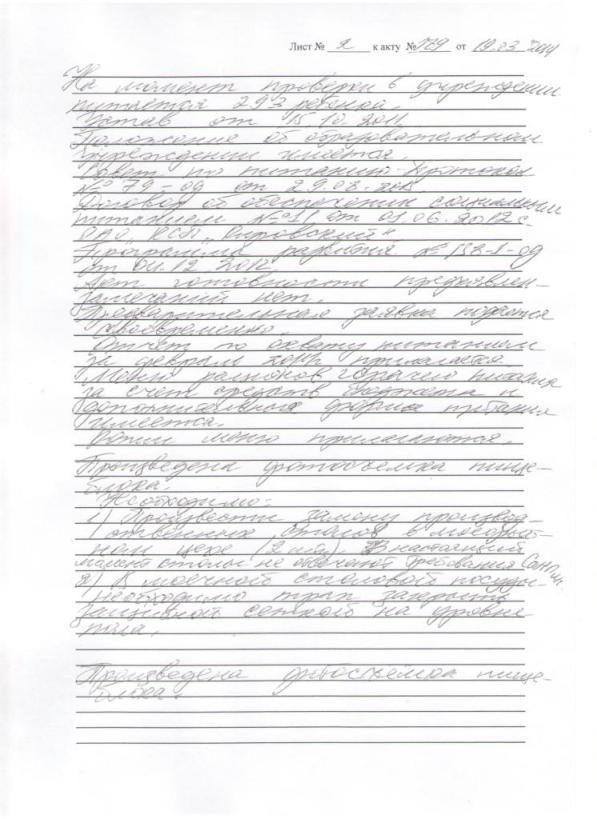 Лист № 2 к акту № 129 от 19.03 2014
На момент проверки в учреждении
питается 293 ребенка.
Устав от 15.10.2011
Положение об образовательном
учреждении имеется.
Совет по питанию протокол
№ 79-09 от 29.08.
Договор об обеспечении социальным
питанием № 11 от 01.06.2012 с
ОАО КСП
Программа развития №
от 04.12
Акт готовности предъявлен
замечаний нет.
Предварительная заявка подается
своевременно.
Отчет по охвату питанием
за февраль 2014 прилагается.
Меню рационов горячего питания
за счет средств бюджета и
дополнительных форм питания
имеется.
Копии меню прилагаются.
Произведена фотосъемка пище-
блока.
Необходимо:
1) Произвести замену производ-
ственных столов в
цехе (2 шт). В настоящий
момент столы не отвечают требования СанПин.
2) В моечной столовой посуды
необходимо трап закрыть
защитной сеткой на уровне
пола.
Произведена фотосъемка пище-
блока.